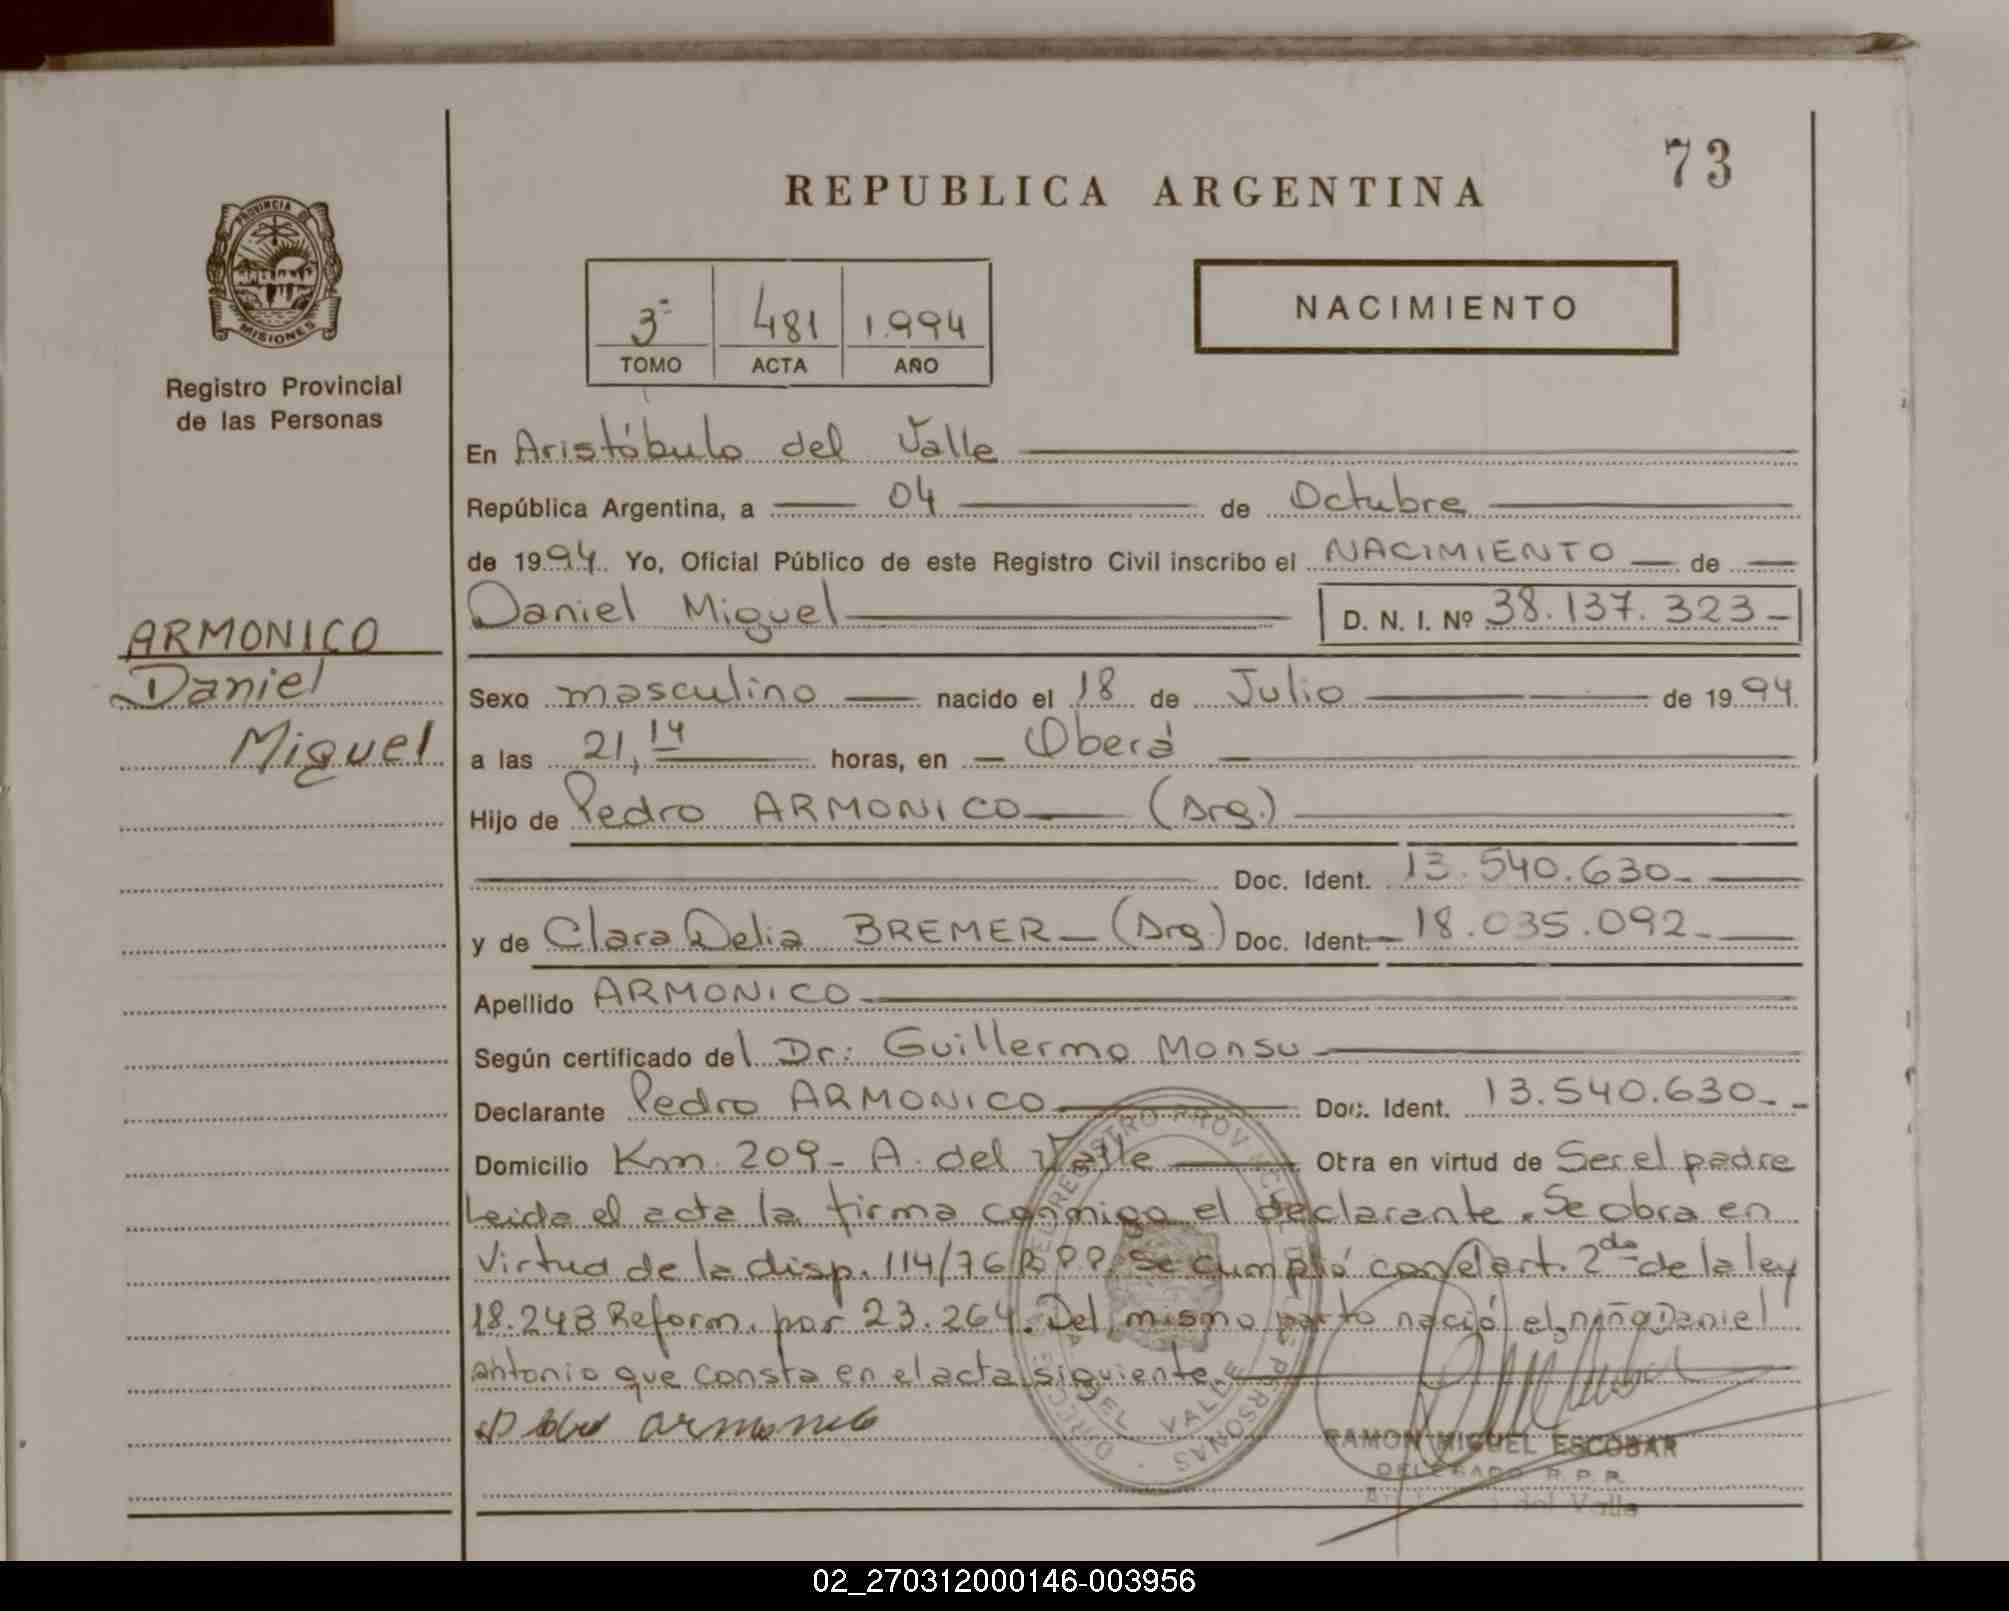 73
REPUBLICA ARGENTINA
PROVINCIA DE
MISIONES
Registro Provincial
de las Personas
3º 481 1.994
TOMO ACTA AÑO
NACIMIENTO
En Aristóbulo del Valle
República Argentina, a 04 de Octubre
de 1994. Yo, Oficial Público de este Registro Civil inscribo el NACIMIENTO de
Daniel Miguel D. N. I. Nº 38.137.323-
ARMONICO
Daniel
Miguel
Sexo masculino nacido el 18 de Julio de 1994.
a las 21,14 horas, en Oberá
Hijo de Pedro ARMONICO (Arg.)
Doc. Ident. 13.540.630-
y de Clara Delia BREMER (Arg.) Doc. Ident. 18.035.092-
Apellido ARMONICO
Según certificado del Dr: Guillermo Monsu
Declarante Pedro ARMONICO Doc. Ident. 13.540.630-
Domicilio Km 209- A. del Valle Otra en virtud de Ser el padre
Leida el acta la firma conmigo el declarante. Se obra en
Virtud de la disp. 114/76 R.P.P. Se cumplió con el art. 2do de la ley
18.248 Reform. por 23.264. Del mismo parto nació el niño Daniel
antonio que consta en el acta siguiente.
armonico
RAMON MIGUEL ESCOBAR
DELEGADO R. P. P.
del Valle
02_270312000146-003956